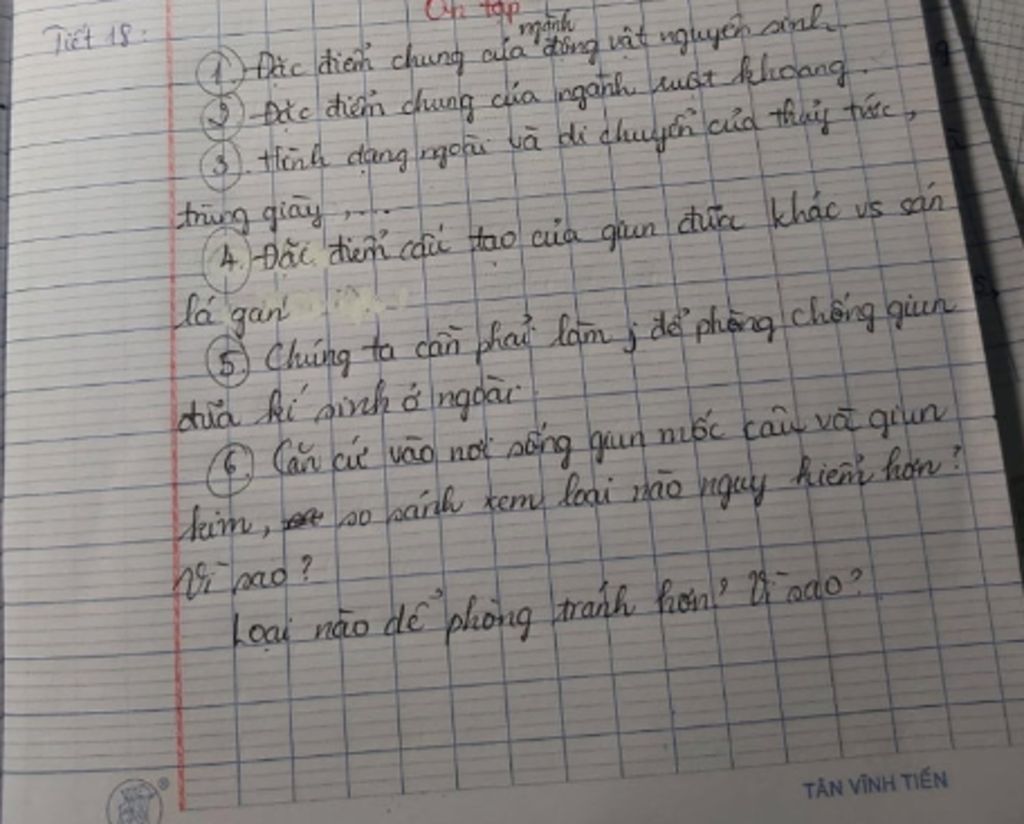 Ôn tập
Tiết 18:
ngành
① Đặc điểm chung của động vật nguyên sinh.
② Đặc điểm chung của ngành ruột khoang.
③. Hình dạng ngoài và di chuyển của thủy tức,
trùng giày,....
④. Đặc điểm cấu tạo của giun đũa khác vs sán
lá gan
⑤. Chúng ta cần phải làm j để phòng chống giun
đũa kí sinh ở ngoài.
⑥. Căn cứ vào nơi sống giun móc câu và giun
kim, so sánh xem loại nào nguy hiểm hơn?
Vì sao?
Loại nào dễ phòng tránh hơn? Vì sao?
TÂN VĨNH TIẾN